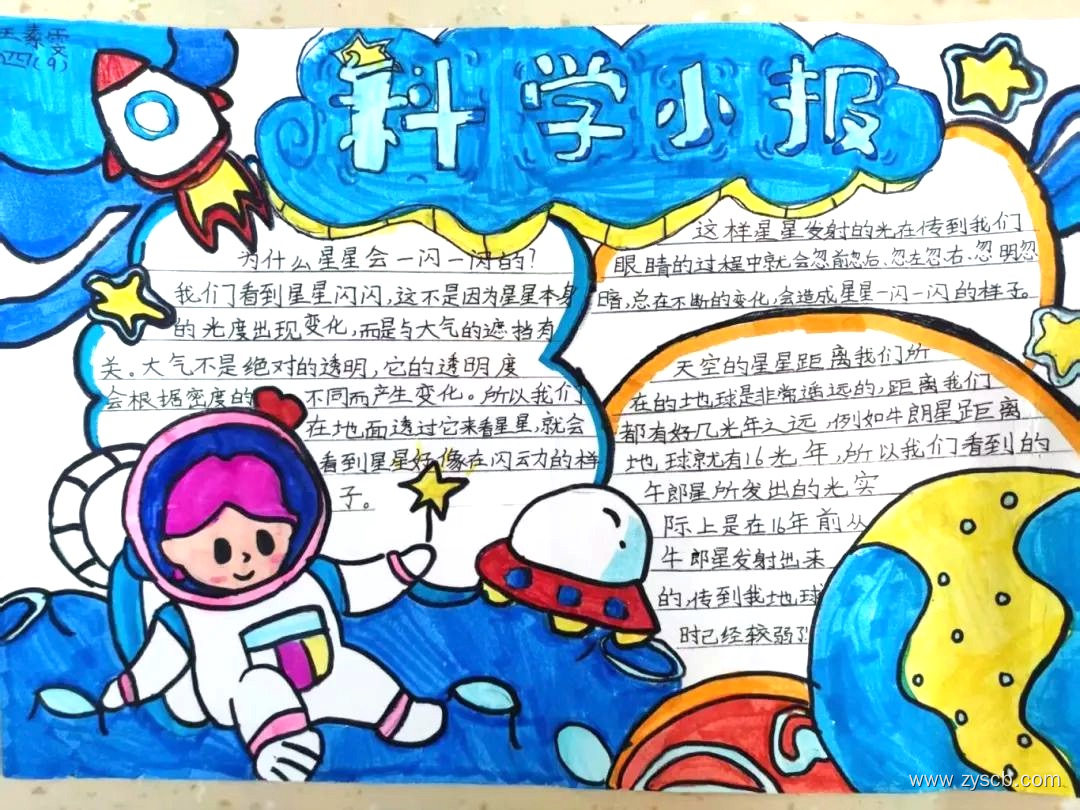 素雯
四(9)
科学小报
为什么星星会一闪一闪的?
我们看到星星闪闪,这不是因为星星本身
的光度出现变化,而是与大气的遮挡有
关。大气不是绝对的透明,它的透明度
会根据密度的不同而产生变化。所以我们
在地面透过它来看星星,就会
看到星星好像在闪动的样
子。
这样星星发射的光在传到我们
眼睛的过程中就会忽前忽后、忽左忽右、忽明忽
暗,总在不断的变化,会造成星星一闪一闪的样子。
天空的星星距离我们所
在的地球是非常遥远的,距离我们
都有好几光年之远,例如牛朗星距离
地球就有16光年,所以我们看到的
牛郎星所发出的光实
际上是在16年前从
牛郎星发射出来
的,传到我地球
时已经较弱了
www.zyscb.com